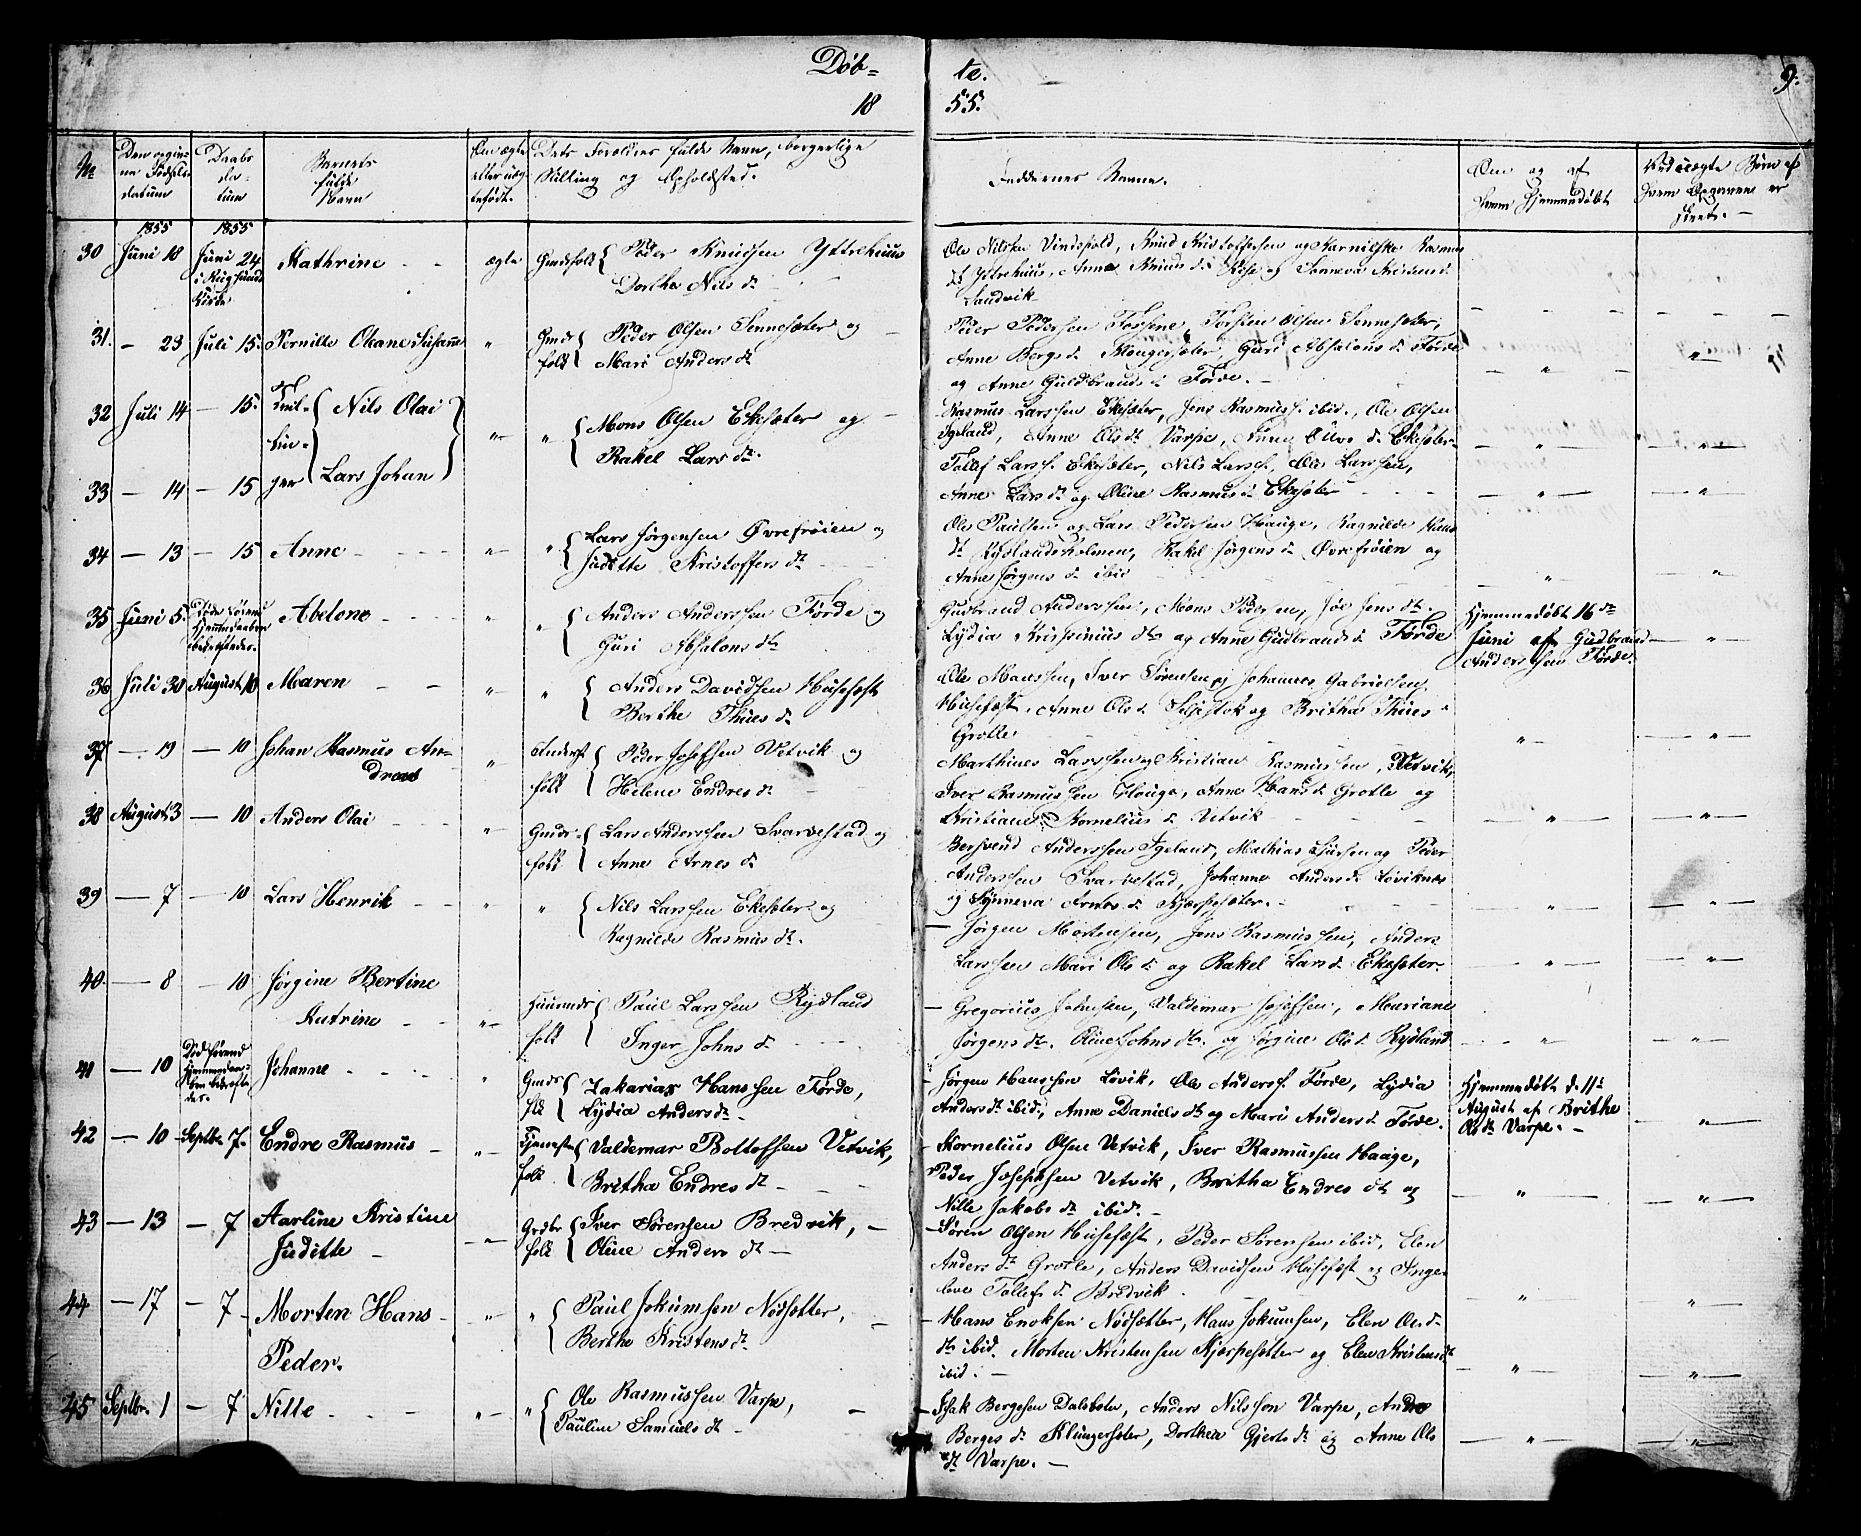 Døb=
te.
9.
18
55.
No
Den opgiv-
ne Fødsels-
datum
Daabs
da-
tum
Barnets
fulde
Navn
Om ægte
eller uæg-
tefødt.
Dets Forældres fulde Navn, borgerlige
Stilling og Opholdssted.
Faddernes Navne.
Om og af
hvem Hjemmedøbt
Ved uægte Børn af
hvem Opgaven er
skeet. -
1855
1855
30 Juni 18 Juni 24 Kathrine ægte Gmdsfolk Peder Knudsen Yttrehuus
i Rugsund
Kirke
Dorthe Nils dt
Ole Nilssen Vindspold, Knud Kristoffersen og Karnilske Rasmus
dt Yttrehuus, Anna Knuds dt Rise og Synneva Kristens d
Sandvik
31. - 23 Juli 15. Pernille Oleane Susanne " Gmds Peder Olsen Sennesæter og
folk Mari Anders dt
Peder Pedersen Fossene, Torsten Olsen Sennesæter,
Anne Bergs d. Klongersæter, Guri Absalons dt Førde
og Anne Guldbrands d Førde. -
32 Juli 14 - 15. Tvil- Nils Olai " " Mons Olsen Ekesæter og
lin- Rakel Lars dt.
33 - 14 - 15 ger Lars Johan
Rasmus Larssen Ekesæter, Jens Rasmuss. ibid., Ole Olsen
Igeland, Anne Ols dt Varpe, Anne Olivo d. Ekesæter
Tollef Larss. Ekesæter, Nils Larss., Ole Larssen,
Anne Lars dt og Oline Rasmus d. Ekesæter
34 - 13 - 15 Anne " " Lars Jørgensen Øvrefrøien og
Juditte Kristoffers dt
Ole Paulsen og Lars Pedersen Hauge, Ragnilde Hans
dt Rydslandsholmen, Rakel Jørgens d. Øvrefrøien og
Anne Jørgens d. ibid
35 Juni 5. Abelone " " Anders Anderssen Førde og
Guri Absalons dt
Gudbrand Anderssen, Mons Pedersen, Joe Jens dt.
Lydia Krispinius dtr og Anne Gudbrands d. Førde
Hjemmedøbt 16de
Juni af Gudbrand
Anderssen Førde.
36 Juli 30 August 10 Maren " " Anders Davidsen Husefæst
Berthe Thues d.
Ole Monssen, Iver Sørensen og Johannes Gabrielsen
Husefæst, Anne Ols d. Seljestok og Britha Thues d
Grotle
37 - 19 - 10 Johan Rasmus An- " Inderst Peder Josefsen Vetvik og
dreas folk Helene Endres dt
Marthines Larssen og Kristian Rasmussen, Vetvik,
Iver Rasmussen Hauge, Anne Hans d. Grotle og
Kristiane Kornelius d. Vetvik
38 August 3 - 10 Anders Olai " Gmdr- Lars Anderssen Svarvestad og
folk Anne Arnes dt
Bersvend Anderssen Igeland, Mathias Siursen og Peder
Anderssen Svarvestad, Johanne Anders d. Løviknes
og Synneva Arnes d. Kjærpesæter. -
39 - 7 - 10 Lars Henrik " " Nils Larssen Ekesæter og
Ragnilde Rasmus dt.
- Jørgen Mortensen, Jens Rasmussen, Anders
Larssen Mari Ols dt og Rakel Lars d. Ekesæter.
40. - 8 - 10 Jørgine Bertine
Katrine " Huusmds Paul Larssen Rydland
folk Inger Johns d.
- Gregorius Johnssen, Valdemar Josefsen, Mariane
Jørgens dt. Oline Johns dtr. og Jørgine Ols d. Rydland
41 - 10 Død førend Johanne " Gmds Zakarias Hanssen Førde,
folk Lydia Anders dt -
- Jørgen Hanssen Løvik, Ole Anderss. Førde, Lydia
Anders dt ibid., Anne Daniels dt og Mari Anders d. Førde.
Hjemmedøbt d. 11te
August af Brithe
Ols dt Varpe. -
42 - 10 Septbr. 7. Endre Rasmus " Tjeneste Valdemar Boltofsen Vetvik,
folk Britha Endres dt
- Kornelius Olsen Vetvik, Iver Rasmussen Haage,
Peder Josephsen Vetvik, Britha Endres dt og
Nille Jakobs dt ibid. -
43 - 13 - 7 Aarline Kristine
Juditte - " Grdbr Iver Sørensen Bredvik, -
folk Oline Anders dt -
- Søren Olsen Husefæst, Peder Sørensen ibid, Elen
Anders dt Grotle, Anders Davidsen Husefæst og Inge-
leve Tollefs d. Bredvik
44 - 17 - 7 Morten Hans
Peder. " " Paul Jokumsen Nødsætter,
Berthe Kristens dt.
- Hans Enoksen Nødsætter, Hans Jokumsen, Elen Ands
dt ibid. Morten Kristensen Kjærpesætter og Elen Kristens dt
ibid. -
45 Septbr. 1 - 7 Nille " " Ole Rasmussen Varpe,
Pauline Samuels dt -
- Isak Bergesen Dalsbotn, Anders Nilsson Varpe, Andro
Berges dt Klungersæter, Dorthea Gjerts dt og Anne Ols
dt Varpe. -